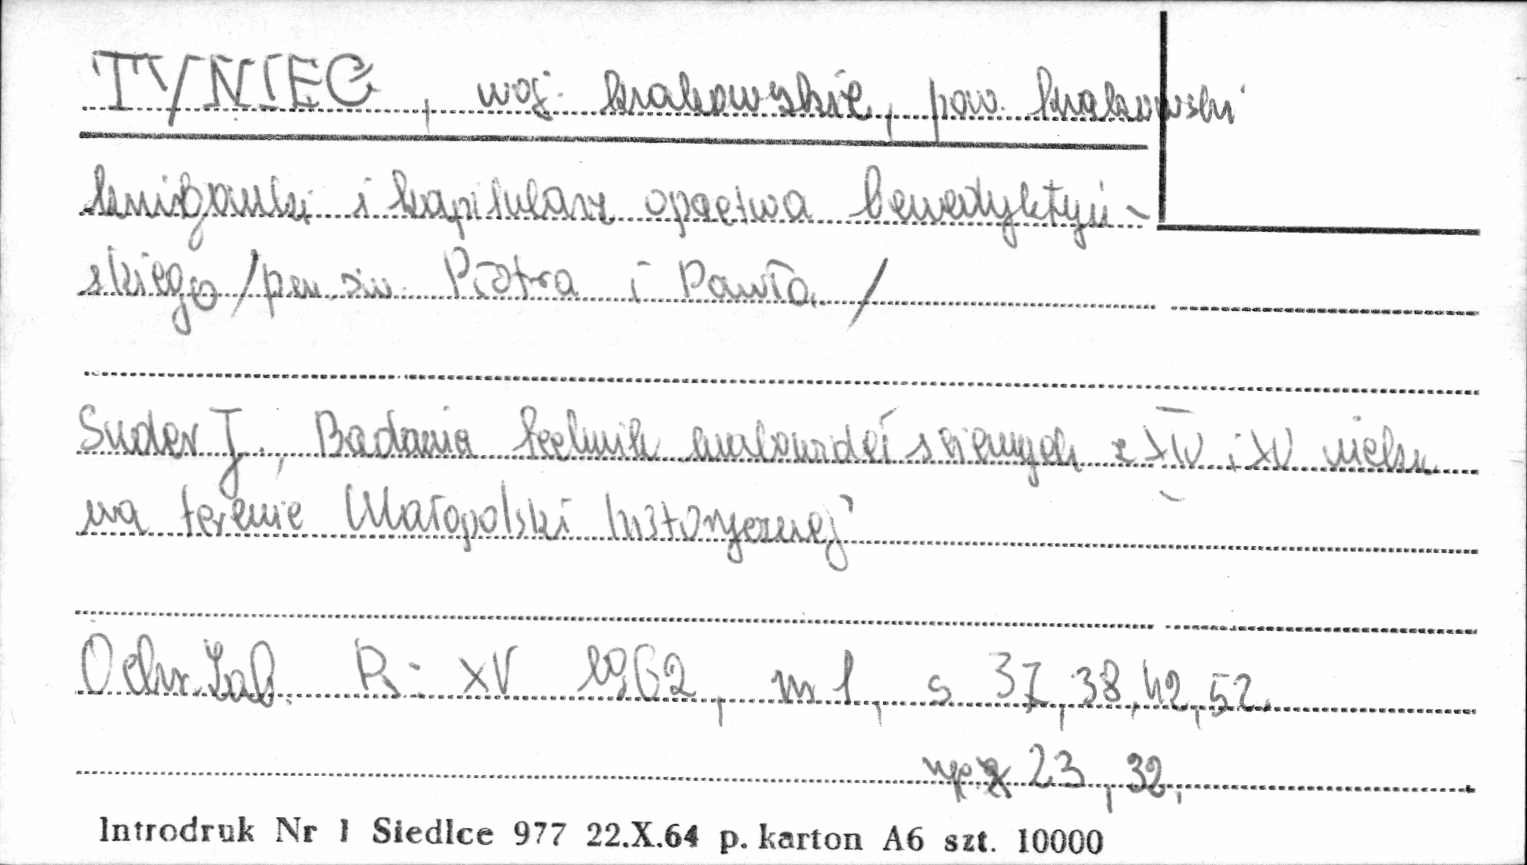 TYNIEC, woj. krakowskie, pow. krakowski
krużganki i kapitularz opactwa benedyktyń-
skiego /p.w. św. Piotra i Pawła/
Suder J., Badania technik malowideł ściennych z XIV i XV wieku
na terenie Małopolski historycznej
Ochr.Zab. R: XV 1962, nr 1, s 37, 38, 42, 52.
23, 32,
Introdruk Nr 1 Siedlce 977 22.X.64 p. karton A6 szt. 10000